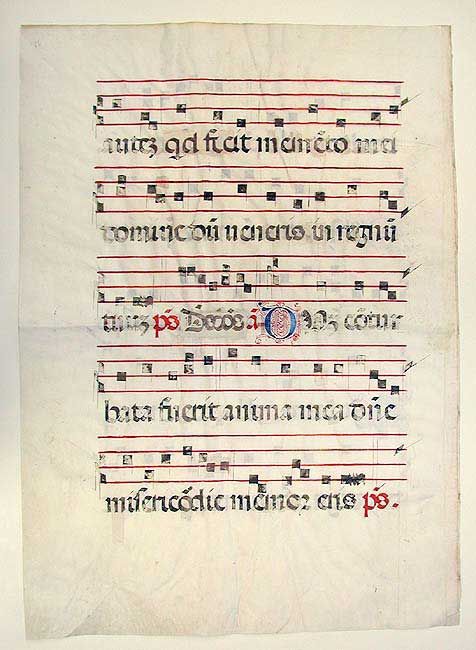 autez qd fecit memēto mei
domine dū veneris in regnū
tuuz p̄s ā Duz cōtur
bata fuerit anima mea dn̄e
misericōdie memor eris p̄s.